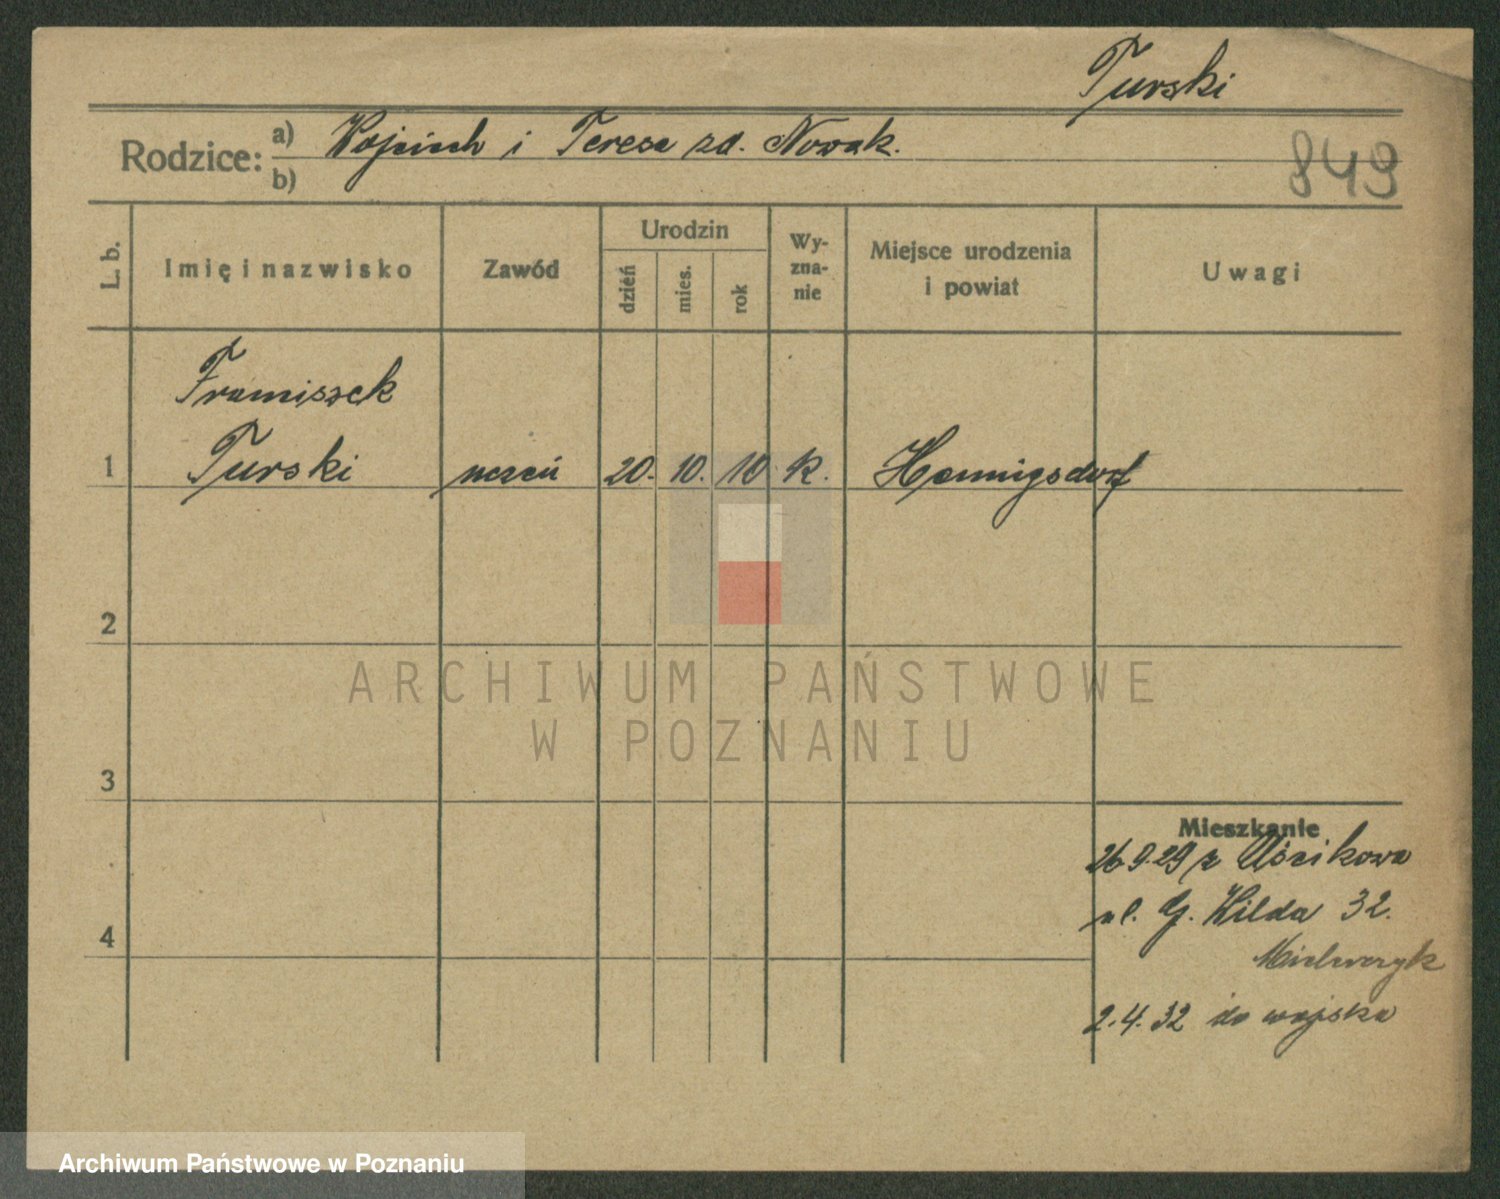 Turski
Rodzice: a) Wojciech i Teresa zd. Nowak.
b)
849
L. b.
Imię i nazwisko
Zawód
Urodzin
dzień
mies.
rok
Wy-
zna-
nie
Miejsce urodzenia
i powiat
Uwagi
Franciszek
1 Turski uczeń 20. 10. 10 k. Hennigsdorf
2
3
4
Mieszkanie
26.9.29 z Uścikowa
ul. G. Wilda 32.
Mielcarzyk
2.4.32 do wojska
ARCHIWUM PAŃSTWOWE
W POZNANIU
Archiwum Państwowe w Poznaniu